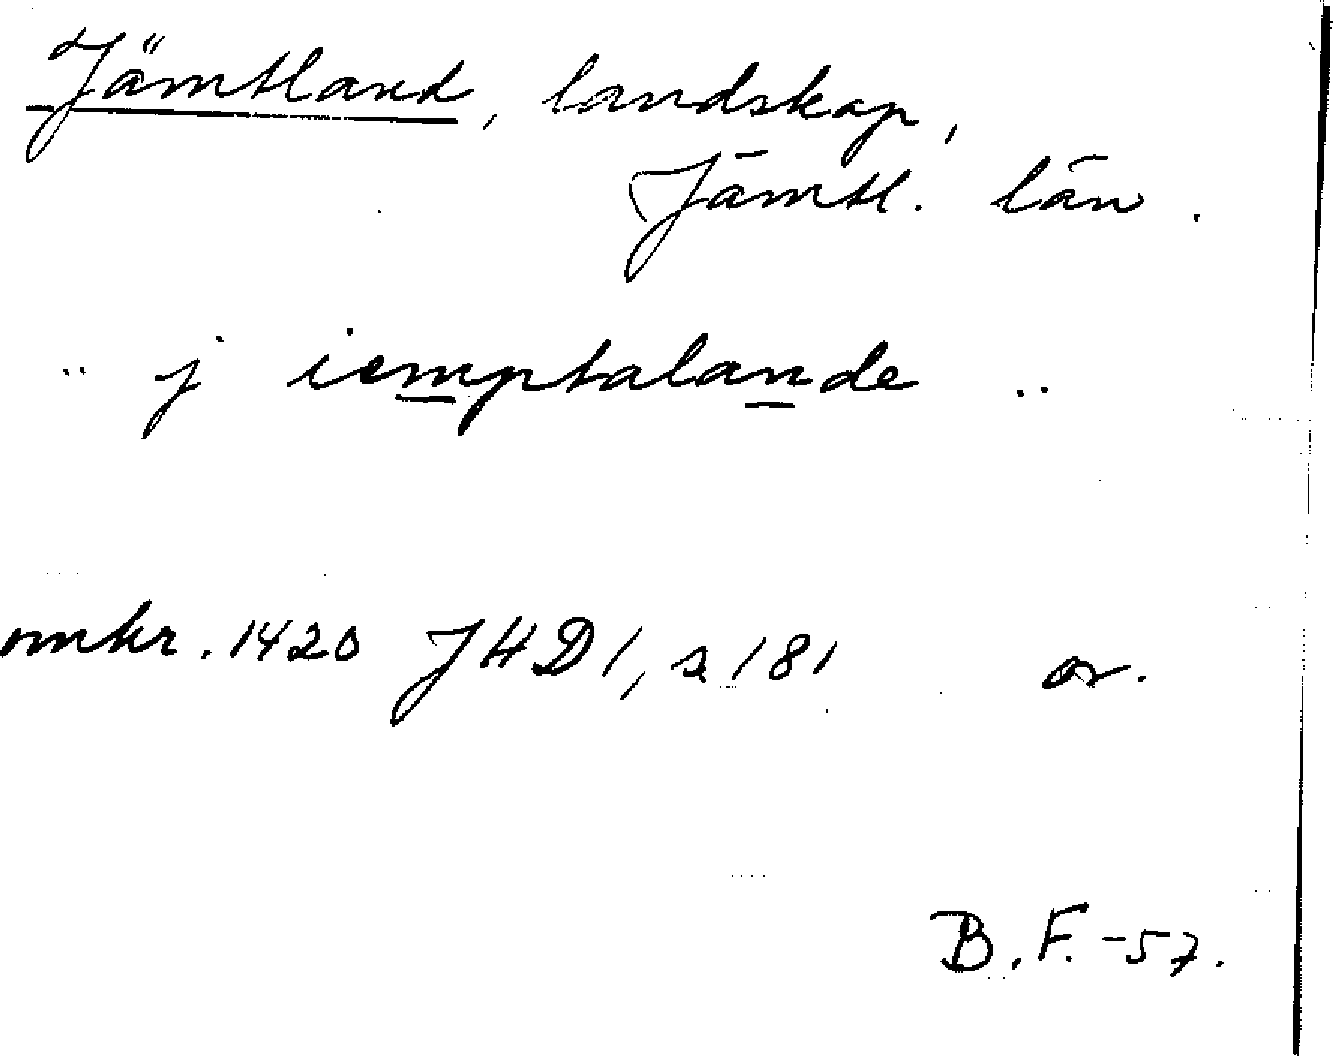 Jämtland, landskap,
Jämtl. län.
.. j iemptalande ..
omkr. 1420 JHD 1, s 181 or.
B.F. -57.